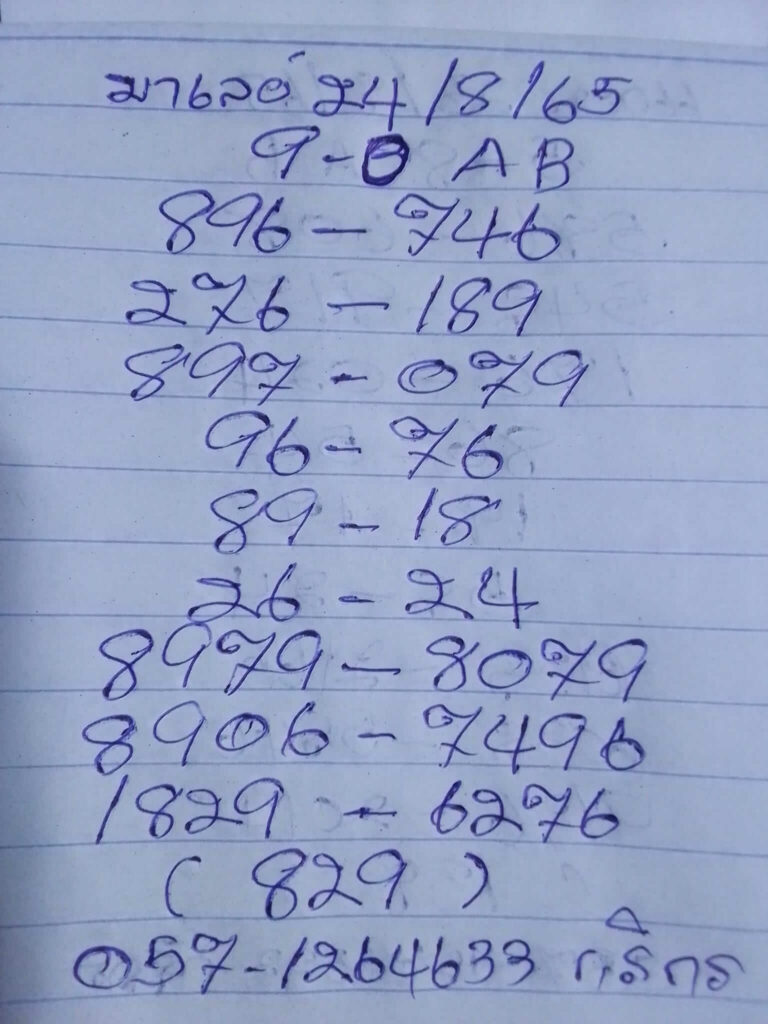 มาเลย์ 24/8/65
9-0 AB
896 - 746
276 - 189
897 - 079
96 - 76
89 - 18
26 - 24
8979 - 8079
8906 - 7496
1829 - 6276
( 829 )
057-1264633